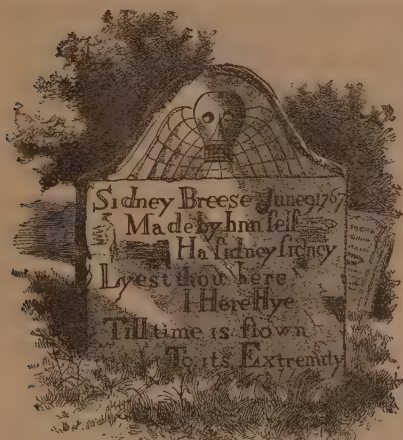 Sidney Breese June 9 1767
Made by him ſelf
Ha ſidney ſidney
Lyest thou here
I Here Lye
Till time is flown
To its Extremity